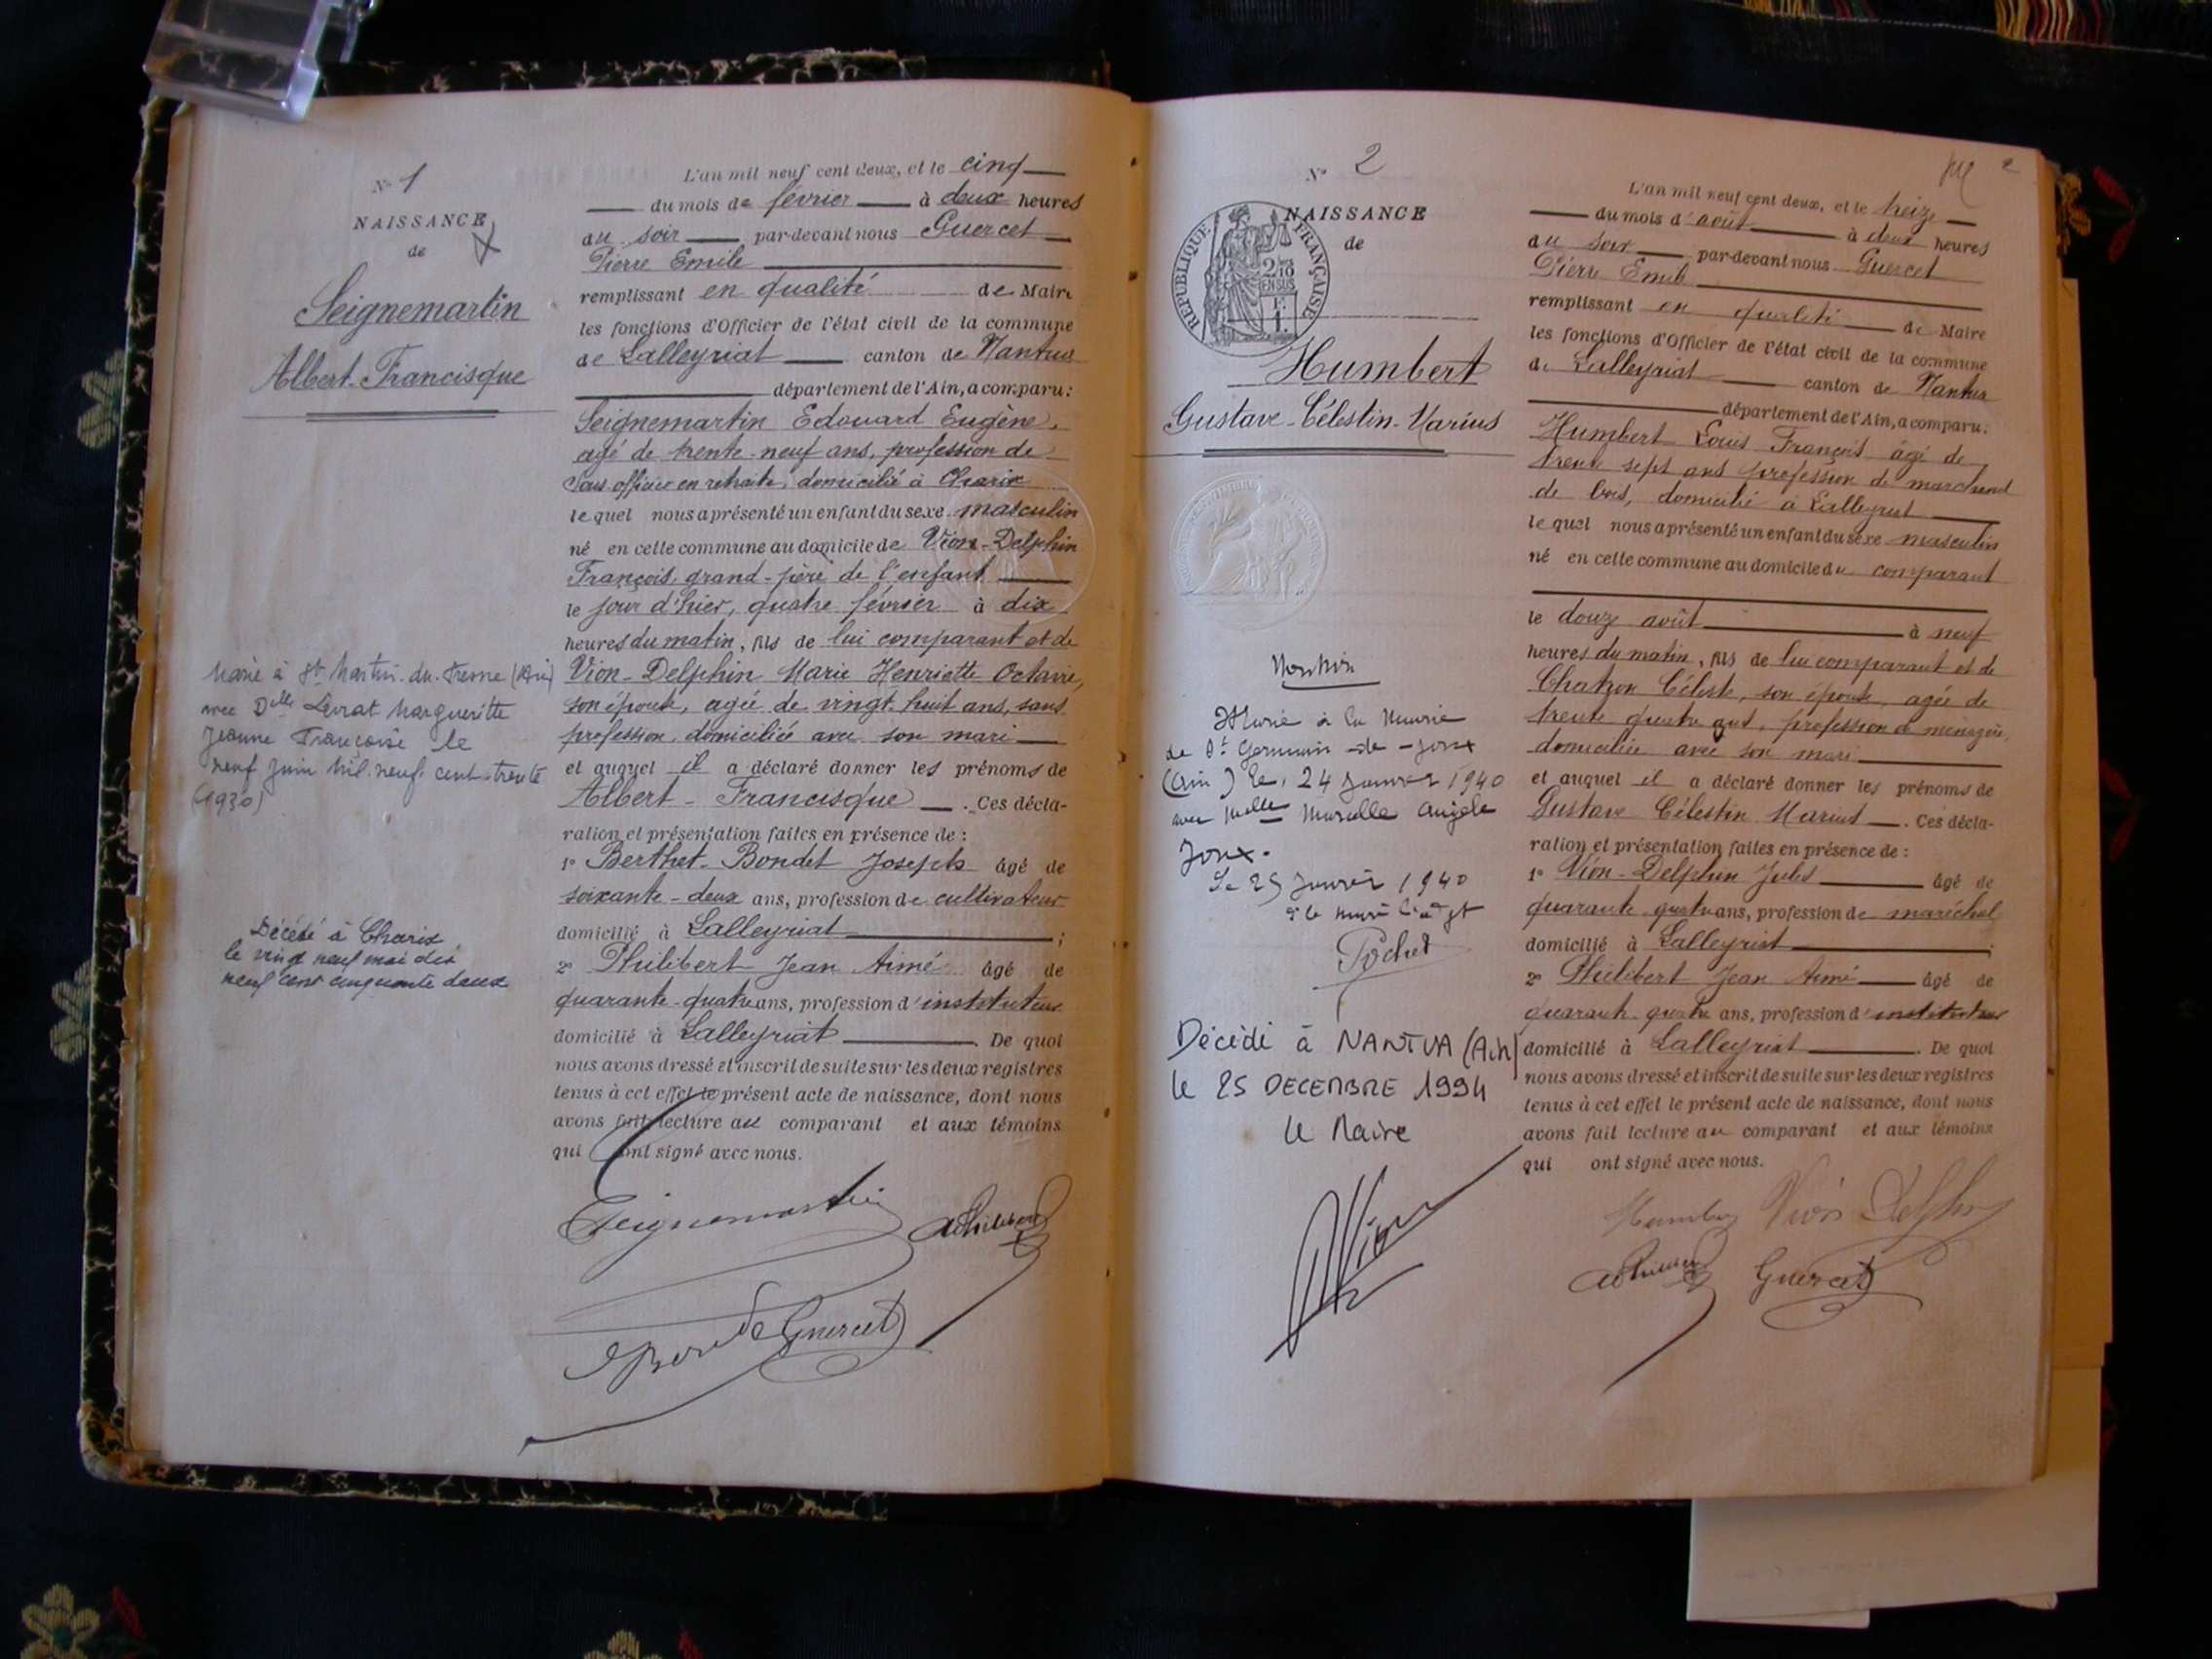 N° 1
NAISSANCE
de
Seignemartin
Albert-Francisque
Marié à St Martin-du-Fresne (Ain)
avec Delle Levrat Margueritte
Jeanne Françoise le
neuf juin mil neuf cent trente
(1930)
Décédé à Charix
le vingt neuf mai dix
neuf cent cinquante deux
L'an mil neuf cent deux, et le cinq
du mois de février à deux heures
du soir par-devant nous Guercet
Pierre Emile
remplissant en qualité de Maire
les fonctions d'Officier de l'état civil de la commune
de Lalleyriat canton de Nantua
département de l'Ain, a comparu:
Seignemartin Edouard Eugène,
agé de trente-neuf ans, profession de
Sous officier en retraite, domicilié à Charix
lequel nous a présenté un enfant du sexe masculin
né en cette commune au domicile de Vion-Delphin
François, grand-père de l'enfant
le jour d'hier, quatre février à dix
heures du matin, fils de lui comparant et de
Vion-Delphin Marie Henriette Octavie,
son épouse, agée de vingt huit ans, sans
profession, domiciliée avec son mari
et auquel il a déclaré donner les prénoms de
Albert-Francisque. Ces décla-
ration et présentation faites en présence de :
1° Berthet-Bondet Joseph âgé de
soixante-deux ans, profession de cultivateur
domicilié à Lalleyriat ;
2° Philibert Jean Aimé âgé de
quarante-quatre ans, profession d'instituteur
domicilié à Lalleyriat. De quoi
nous avons dressé et inscrit de suite sur les deux registres
tenus à cet effet le présent acte de naissance, dont nous
avons fait lecture au comparant et aux témoins
qui ont signé avec nous.
Seignemartin
Guercet
N° 2
NAISSANCE
de
RÉPUBLIQUE FRANÇAISE
2/10
EN SUS
Humbert
Gustave-Célestin-Marius
Mention
Marié à la Mairie
de St Germain-de-Joux
(Ain) le 24 Janvier 1940
avec Melle Marcelle Angèle
Joux.
Le 25 Janvier 1940
Pochet
Décédé à NANTUA (Ain)
le 25 DECEMBRE 1994
Le Maire
2
L'an mil neuf cent deux, et le treize
du mois d'août à deux heures
du soir par-devant nous Guercet
Pierre Emile
remplissant en qualité de Maire
les fonctions d'Officier de l'état civil de la commune
de Lalleyriat canton de Nantua
département de l'Ain, a comparu:
Humbert Louis François âgé de
trente sept ans profession de marchand
de bois, domicilié à Lalleyriat
lequel nous a présenté un enfant du sexe masculin
né en cette commune au domicile du comparant
le douze août à neuf
heures du matin, fils de lui comparant et de
Chatron Céleste, son épouse, agée de
trente quatre ans, profession de ménagère,
domiciliée avec son mari
et auquel il a déclaré donner les prénoms de
Gustave Célestin Marius. Ces décla-
ration et présentation faites en présence de :
1° Vion-Delphin Jules âgé de
quarante quatre ans, profession de maréchal
domicilié à Lalleyriat ;
2° Philibert Jean Aimé âgé de
quarante-quatre ans, profession d'instituteur
domicilié à Lalleyriat. De quoi
nous avons dressé et inscrit de suite sur les deux registres
tenus à cet effet le présent acte de naissance, dont nous
avons fait lecture au comparant et aux témoins
qui ont signé avec nous.
Humbert Vion Delphin
Guercet